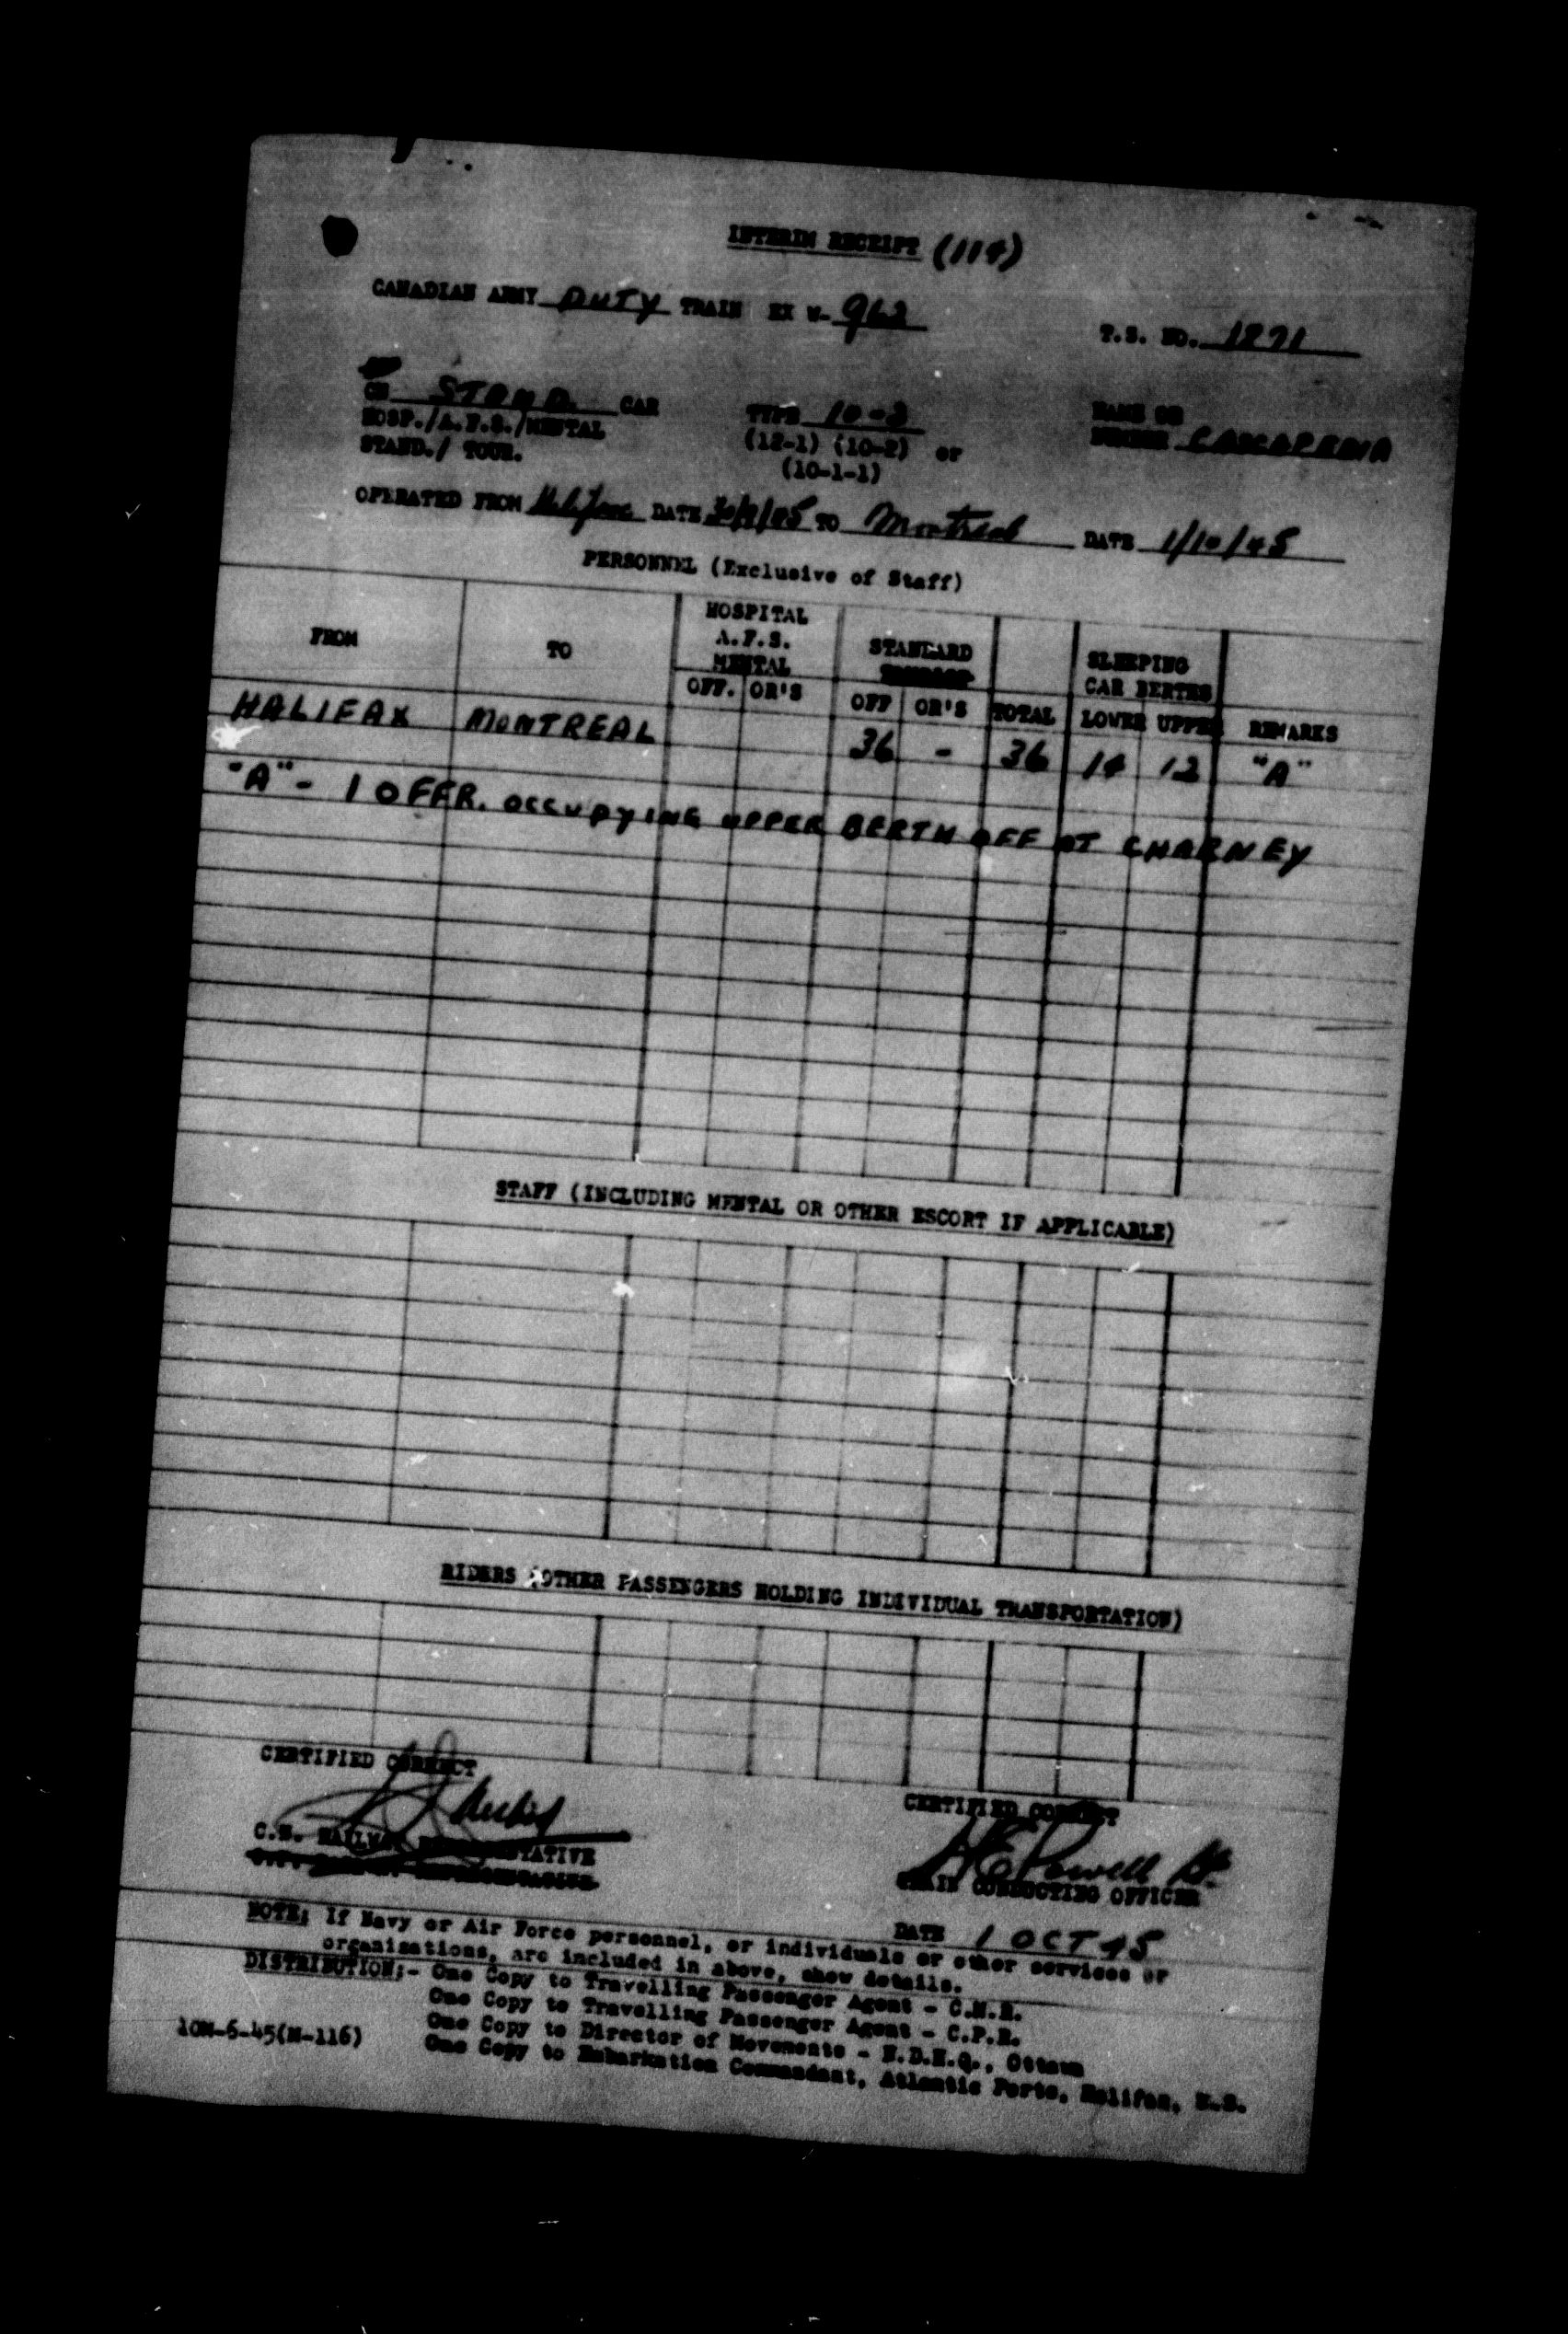 INTERIM RECEIPT (114)
CANADIAN ARMY DUTY TRAIN EX W- 962
T.S. NO. 1871
CN STAND. CAR TYPE 10-2 NAME OR
HOSP./A.F.S./MENTAL (12-1) (10-2) or NUMBER CASCAPEDIA
STAND./ TOUR. (10-1-1)
OPERATED FROM Halifax DATE 30/9/45 TO Montreal DATE 1/10/45
PERSONNEL (Exclusive of Staff)
FROM TO HOSPITAL A.F.S. MENTAL STANDARD SLEEPING CAR BERTHS
OFF. OR'S OFF OR'S TOTAL LOWER UPPER REMARKS
HALIFAX MONTREAL 36 - 36 14 12 "A"
"A" - 1 OFFR. OCCUPYING UPPER BERTH OFF AT CHARNEY
STAFF (INCLUDING MENTAL OR OTHER ESCORT IF APPLICABLE)
RIDERS (OTHER PASSENGERS HOLDING INDIVIDUAL TRANSPORTATION)
CERTIFIED CORRECT
C.N. RAILWAY REPRESENTATIVE
CERTIFIED CORRECT
H E Powell Lt.
TRAIN CONDUCTING OFFICER
DATE 1 OCT 45
NOTE: If Navy or Air Force personnel, or individuals or other services or
organizations, are included in above, show details.
DISTRIBUTION:- One Copy to Travelling Passenger Agent - C.N.R.
One Copy to Travelling Passenger Agent - C.P.R.
One Copy to Director of Movements - N.D.H.Q., Ottawa
One Copy to Embarkation Commandant, Atlantic Ports, Halifax, N.S.
10M-6-45(M-116)